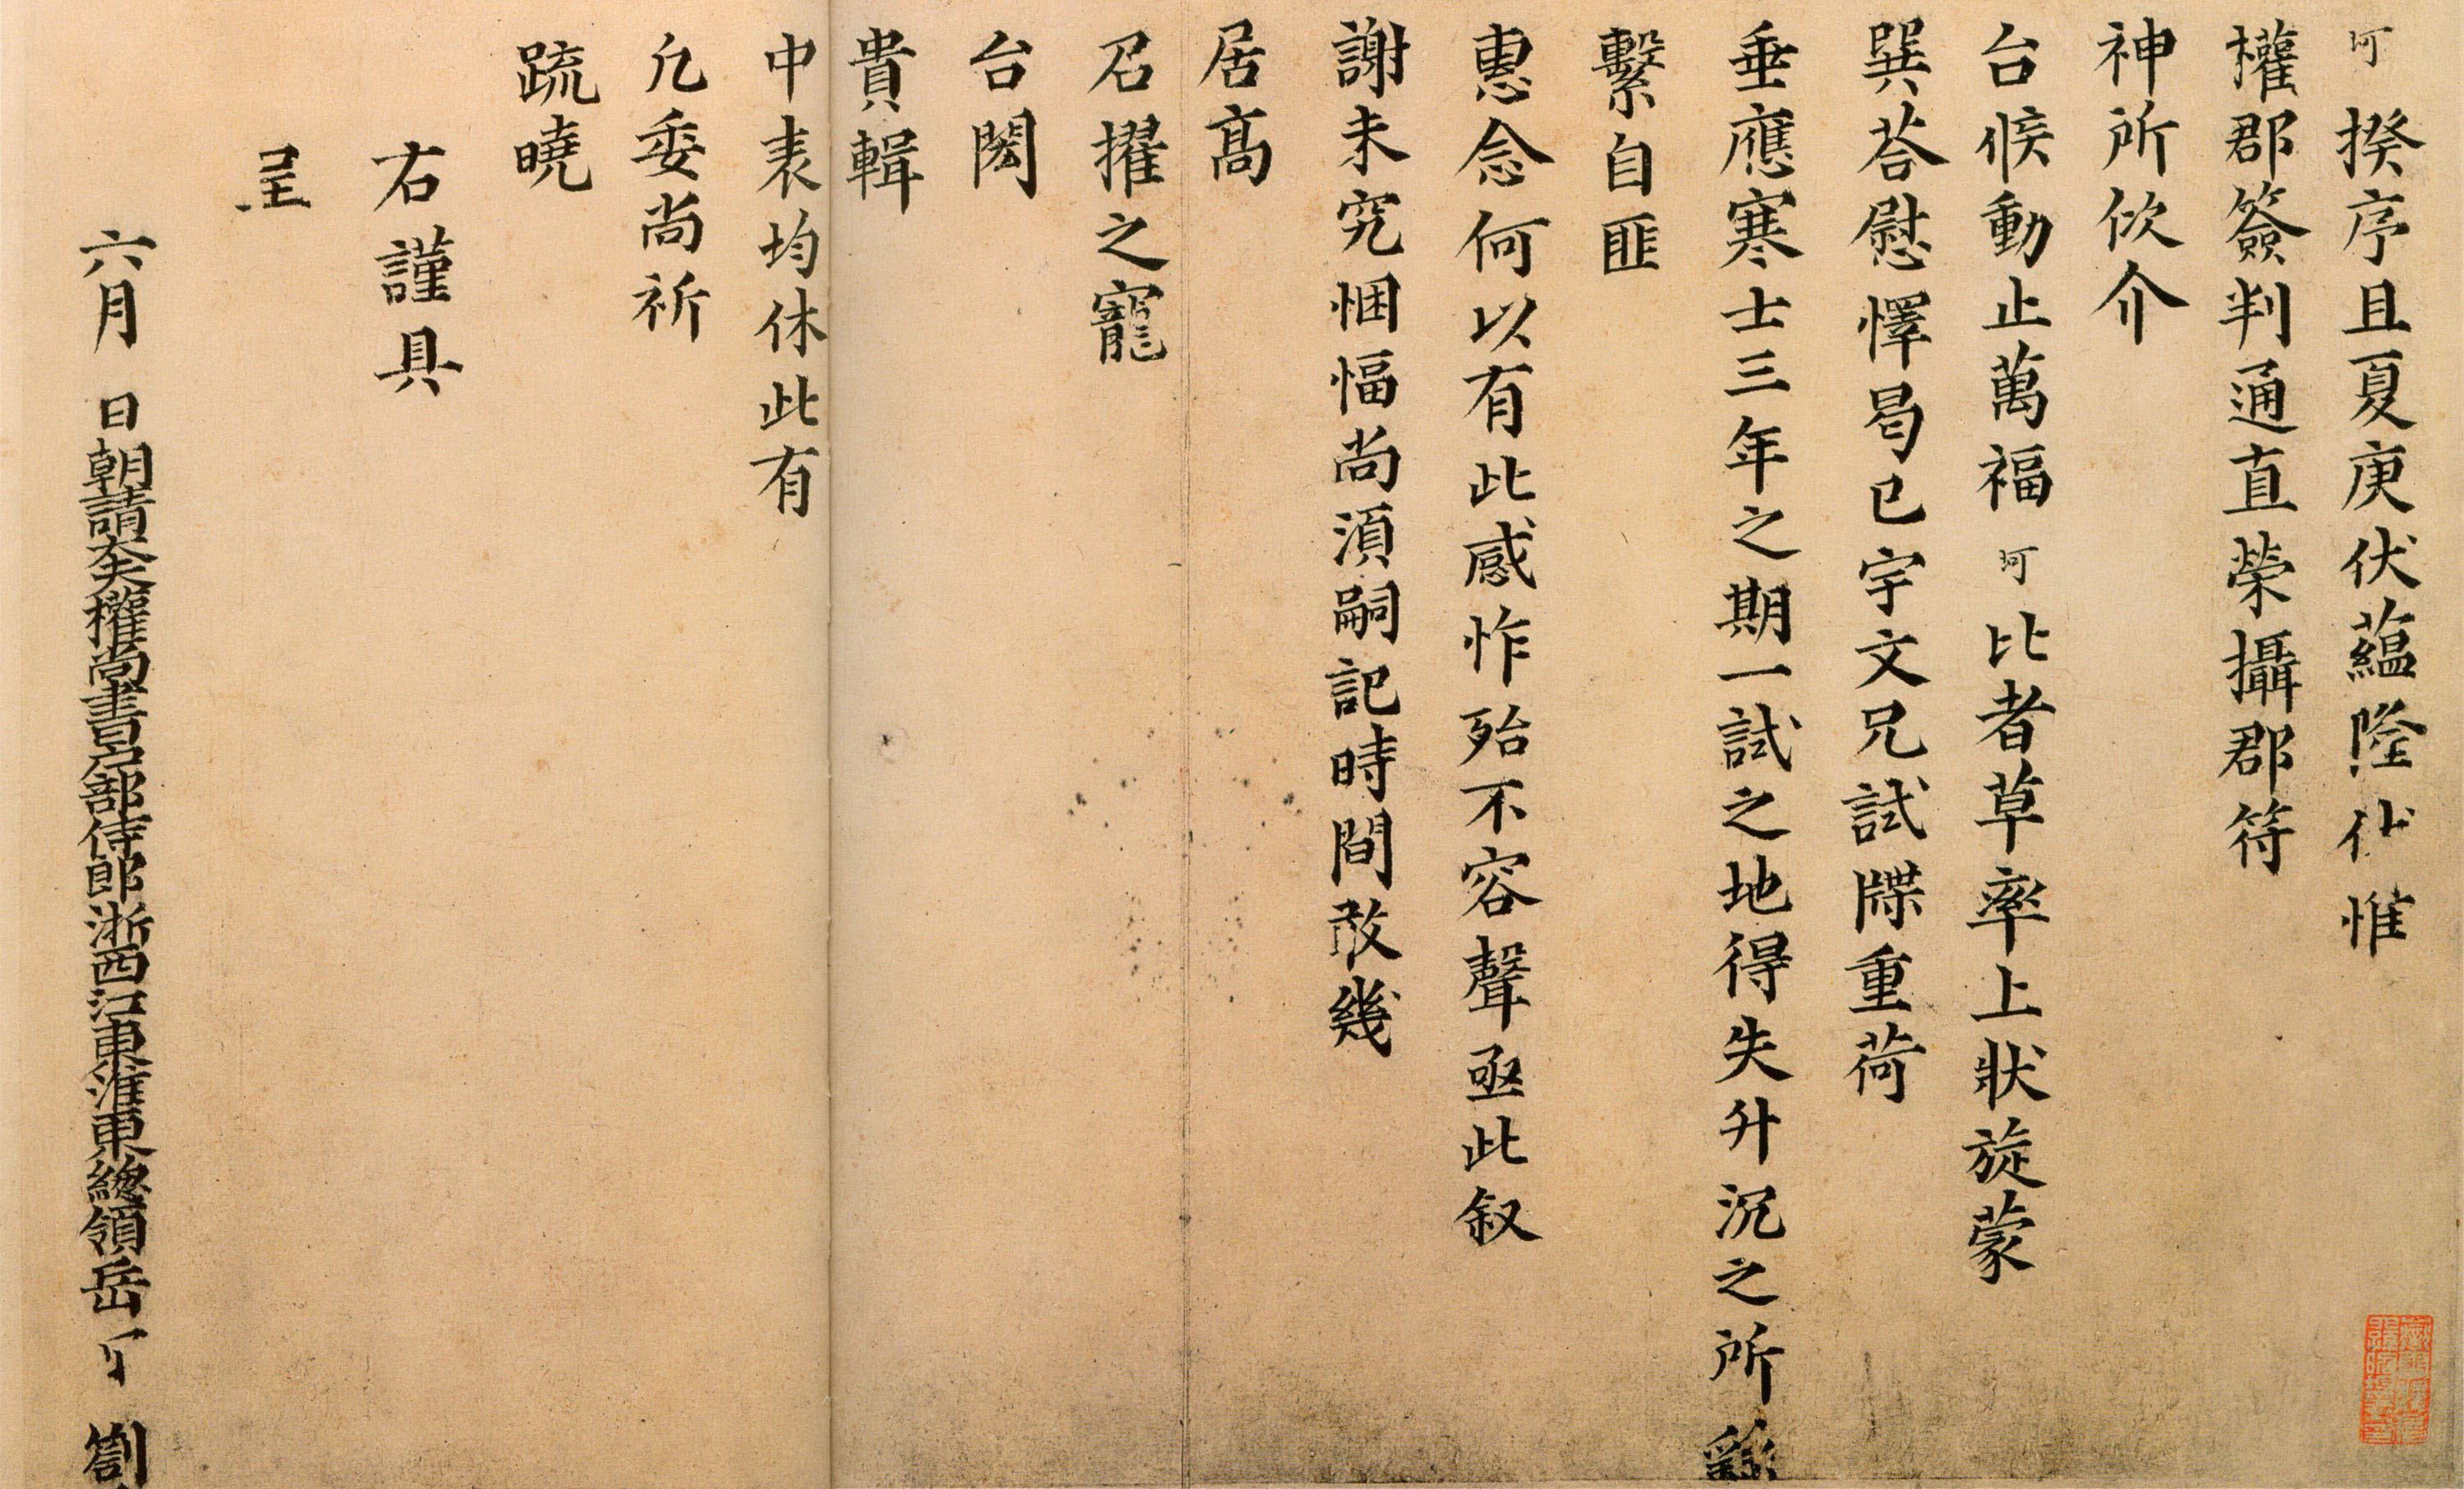 珂揆序且夏庚伏蘊隆伏惟
權郡簽判通直榮攝郡符
神所欣介
台候動止萬福珂比者草率上狀旋蒙
巽荅慰懌曷已宇文兄試牒重荷
垂應寒士三年之期一試之地得失升沉之所繇
繫自匪
惠念何以有此感怍殆不容聲亟此叙
謝未究悃愊尚須嗣記時間敢幾
居髙
召擢之寵
台閎
貴輯
中表均休此有
凢委尚祈
䟽曉
右謹具
呈
六月 日朝請大夫權尚書户部侍郎浙西江東淮東總領岳 劄